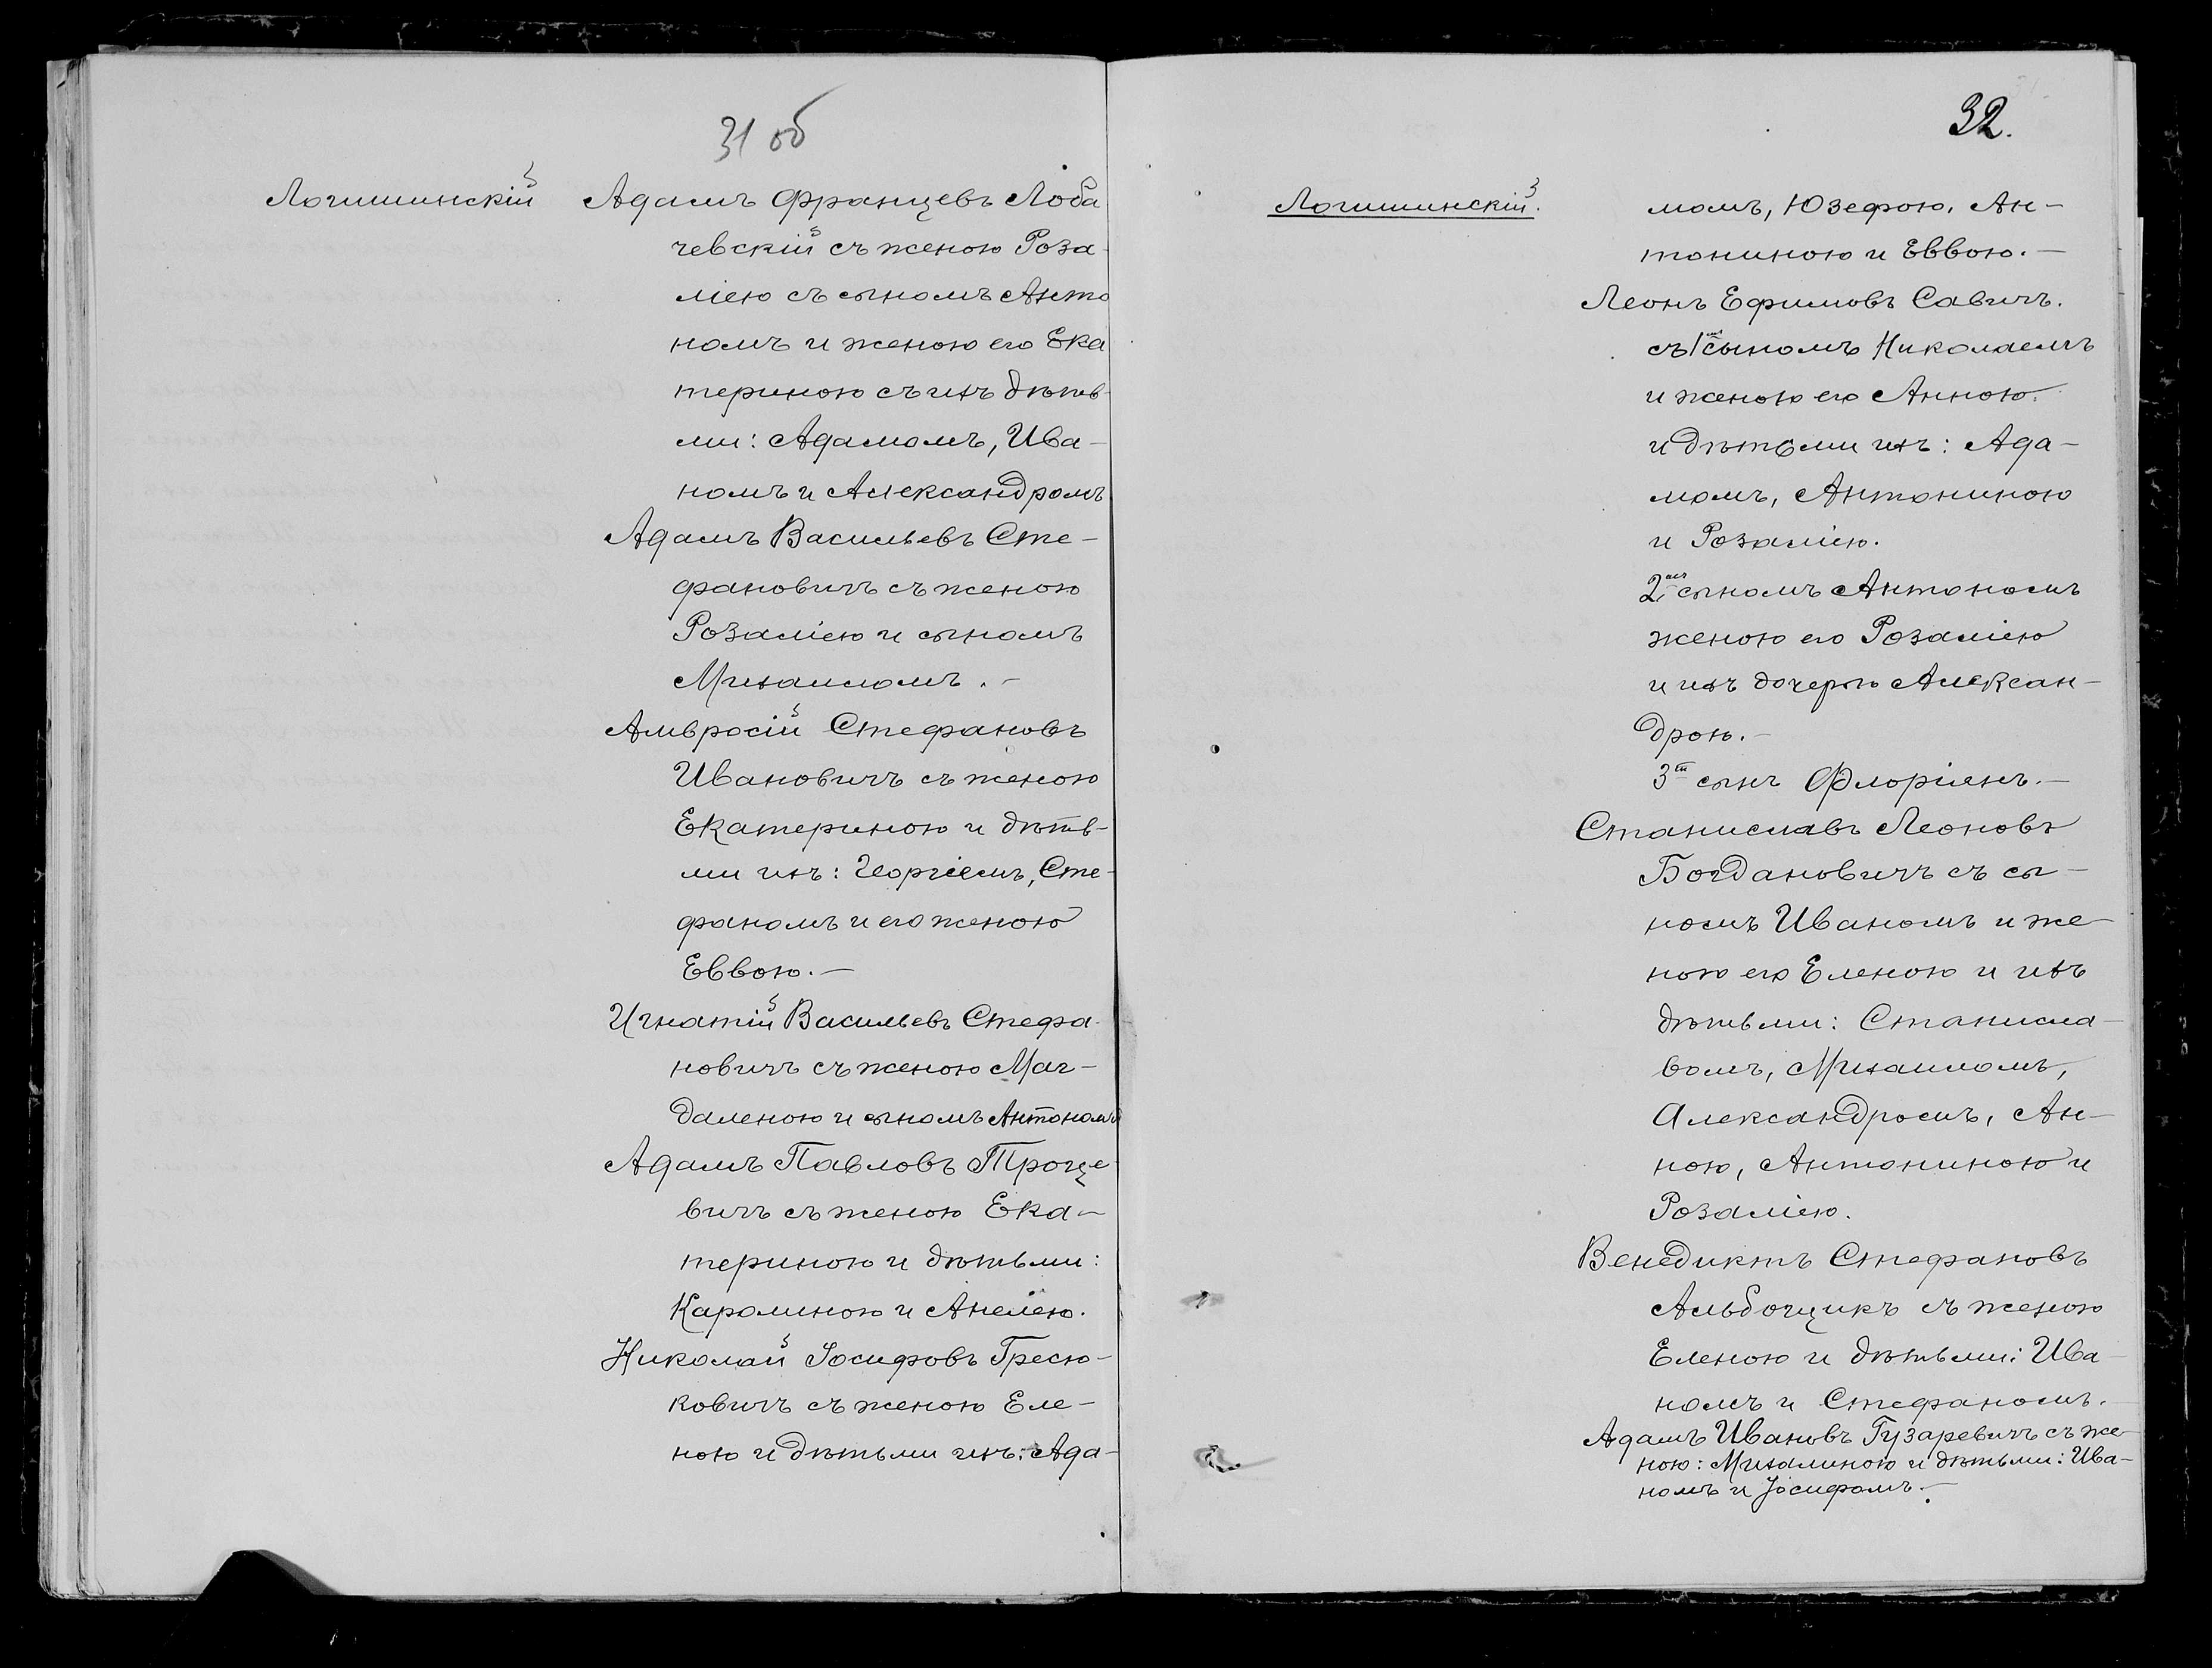 31 об
Логишинскій Адамъ Францевъ Лоба
чевскій съ женою Роза-
ліею съ сыномъ Анто
номъ и женою его Ека
териною съ ихъ дѣтьв
ми: Адамомъ, Ива-
номъ и Александромъ
Адамъ Васильевъ Сте-
фановичъ съ женою
Розаліею и сыномъ
Михаиломъ.-
Амвросій Стефановъ
Ивановичъ съ женою
Екатериною и дѣть-
ми ихъ: Георгіемъ, Сте-
фаномъ и его женою
Еввою.-
Игнатій Васильевъ Стефа-
новичъ съ женою Маг-
даленою и сыномъ Антономъ
Адамъ Павловъ Троце-
вичъ съ женою Ека-
териною и дѣтьми:
Каролиною и Анеліею.
Николай Іосифовъ Гресю-
ковичъ съ женою Еле-
ною и дѣтьми ихъ: Ада-
32.
Логишинскій.
момъ, Юзефою, Ан-
тониною и Еввою.-
Леонъ Ефимовъ Савичъ.
съ 1мъ сыномъ Николаемъ
и женою его Анною.
и дѣтьми ихъ: Ада-
момъ, Антониною
и Розаліею.
2мъ сыномъ Антономъ
женою его Розаліею
и ихъ дочерью Алексан-
дрою.-
3ій сынъ Флоріянъ.-
Станиславъ Леоновъ
Богдановичъ съ сы-
номъ Иваномъ и же-
ною его Еленою и ихъ
дѣтьми: Станисла-
вомъ, Михаиломъ,
Александромъ, Ан-
ною, Антониною и
Розаліею.
Венедиктъ Стефановъ
Альбощикъ съ женою
Еленою и дѣтьми: Ива-
номъ и Стефаномъ.-
Адамъ Ивановъ Гузаревичъ съ же-
ною: Михалиною и дѣтьми: Ива-
номъ и Іосифомъ.-